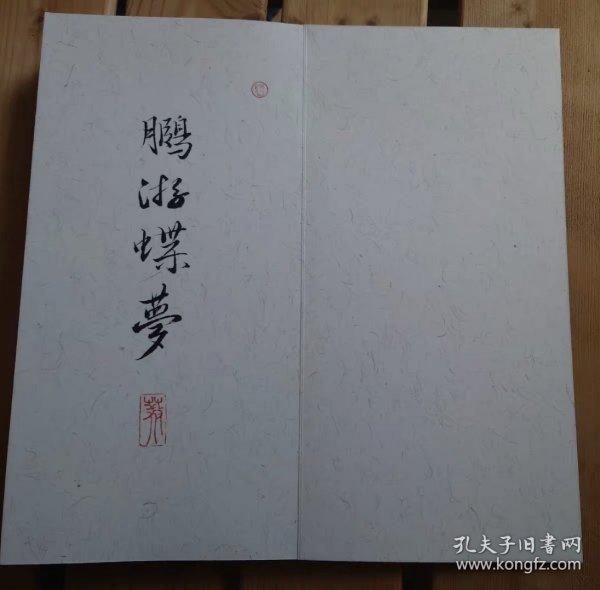 鵬游蝶夢
孔夫子旧書网
www.kongfz.com